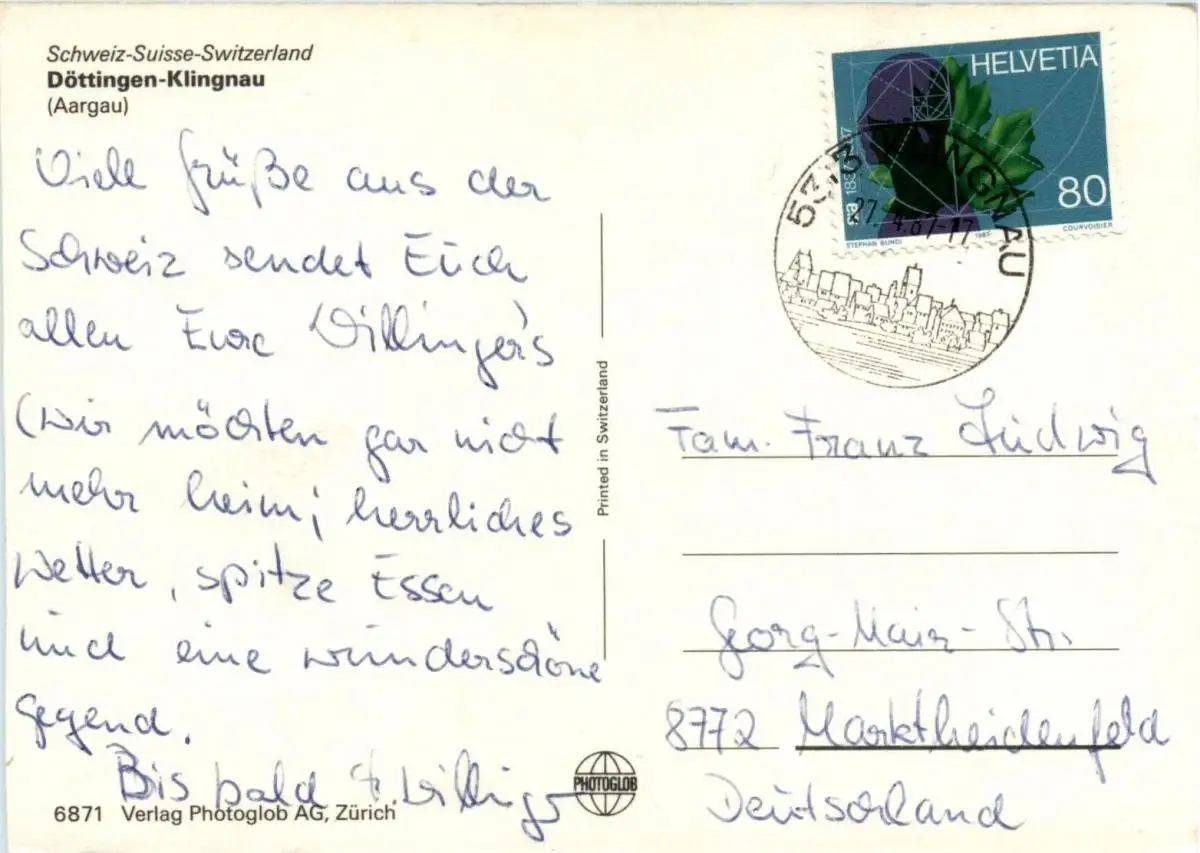 Schweiz-Suisse-Switzerland
Döttingen-Klingnau
(Aargau)
Viele Grüße aus der
Schweiz sendet Euch
allen Eure Willinger's
(wir möchten gar nicht
mehr heim; herrliches
Wetter, spitze Essen
und eine wunderschöne
Gegend.
Bis bald
6871 Verlag Photoglob AG, Zürich
Printed in Switzerland
PHOTOGLOB
HELVETIA
80
STEPHAN BUNDI
1987
COURVOISIER
5313 KLINGNAU
27.-4.87-17
Fam. Franz Ludwig
Georg-Mair-Str.
8772 Marktheidenfeld
Deutschland